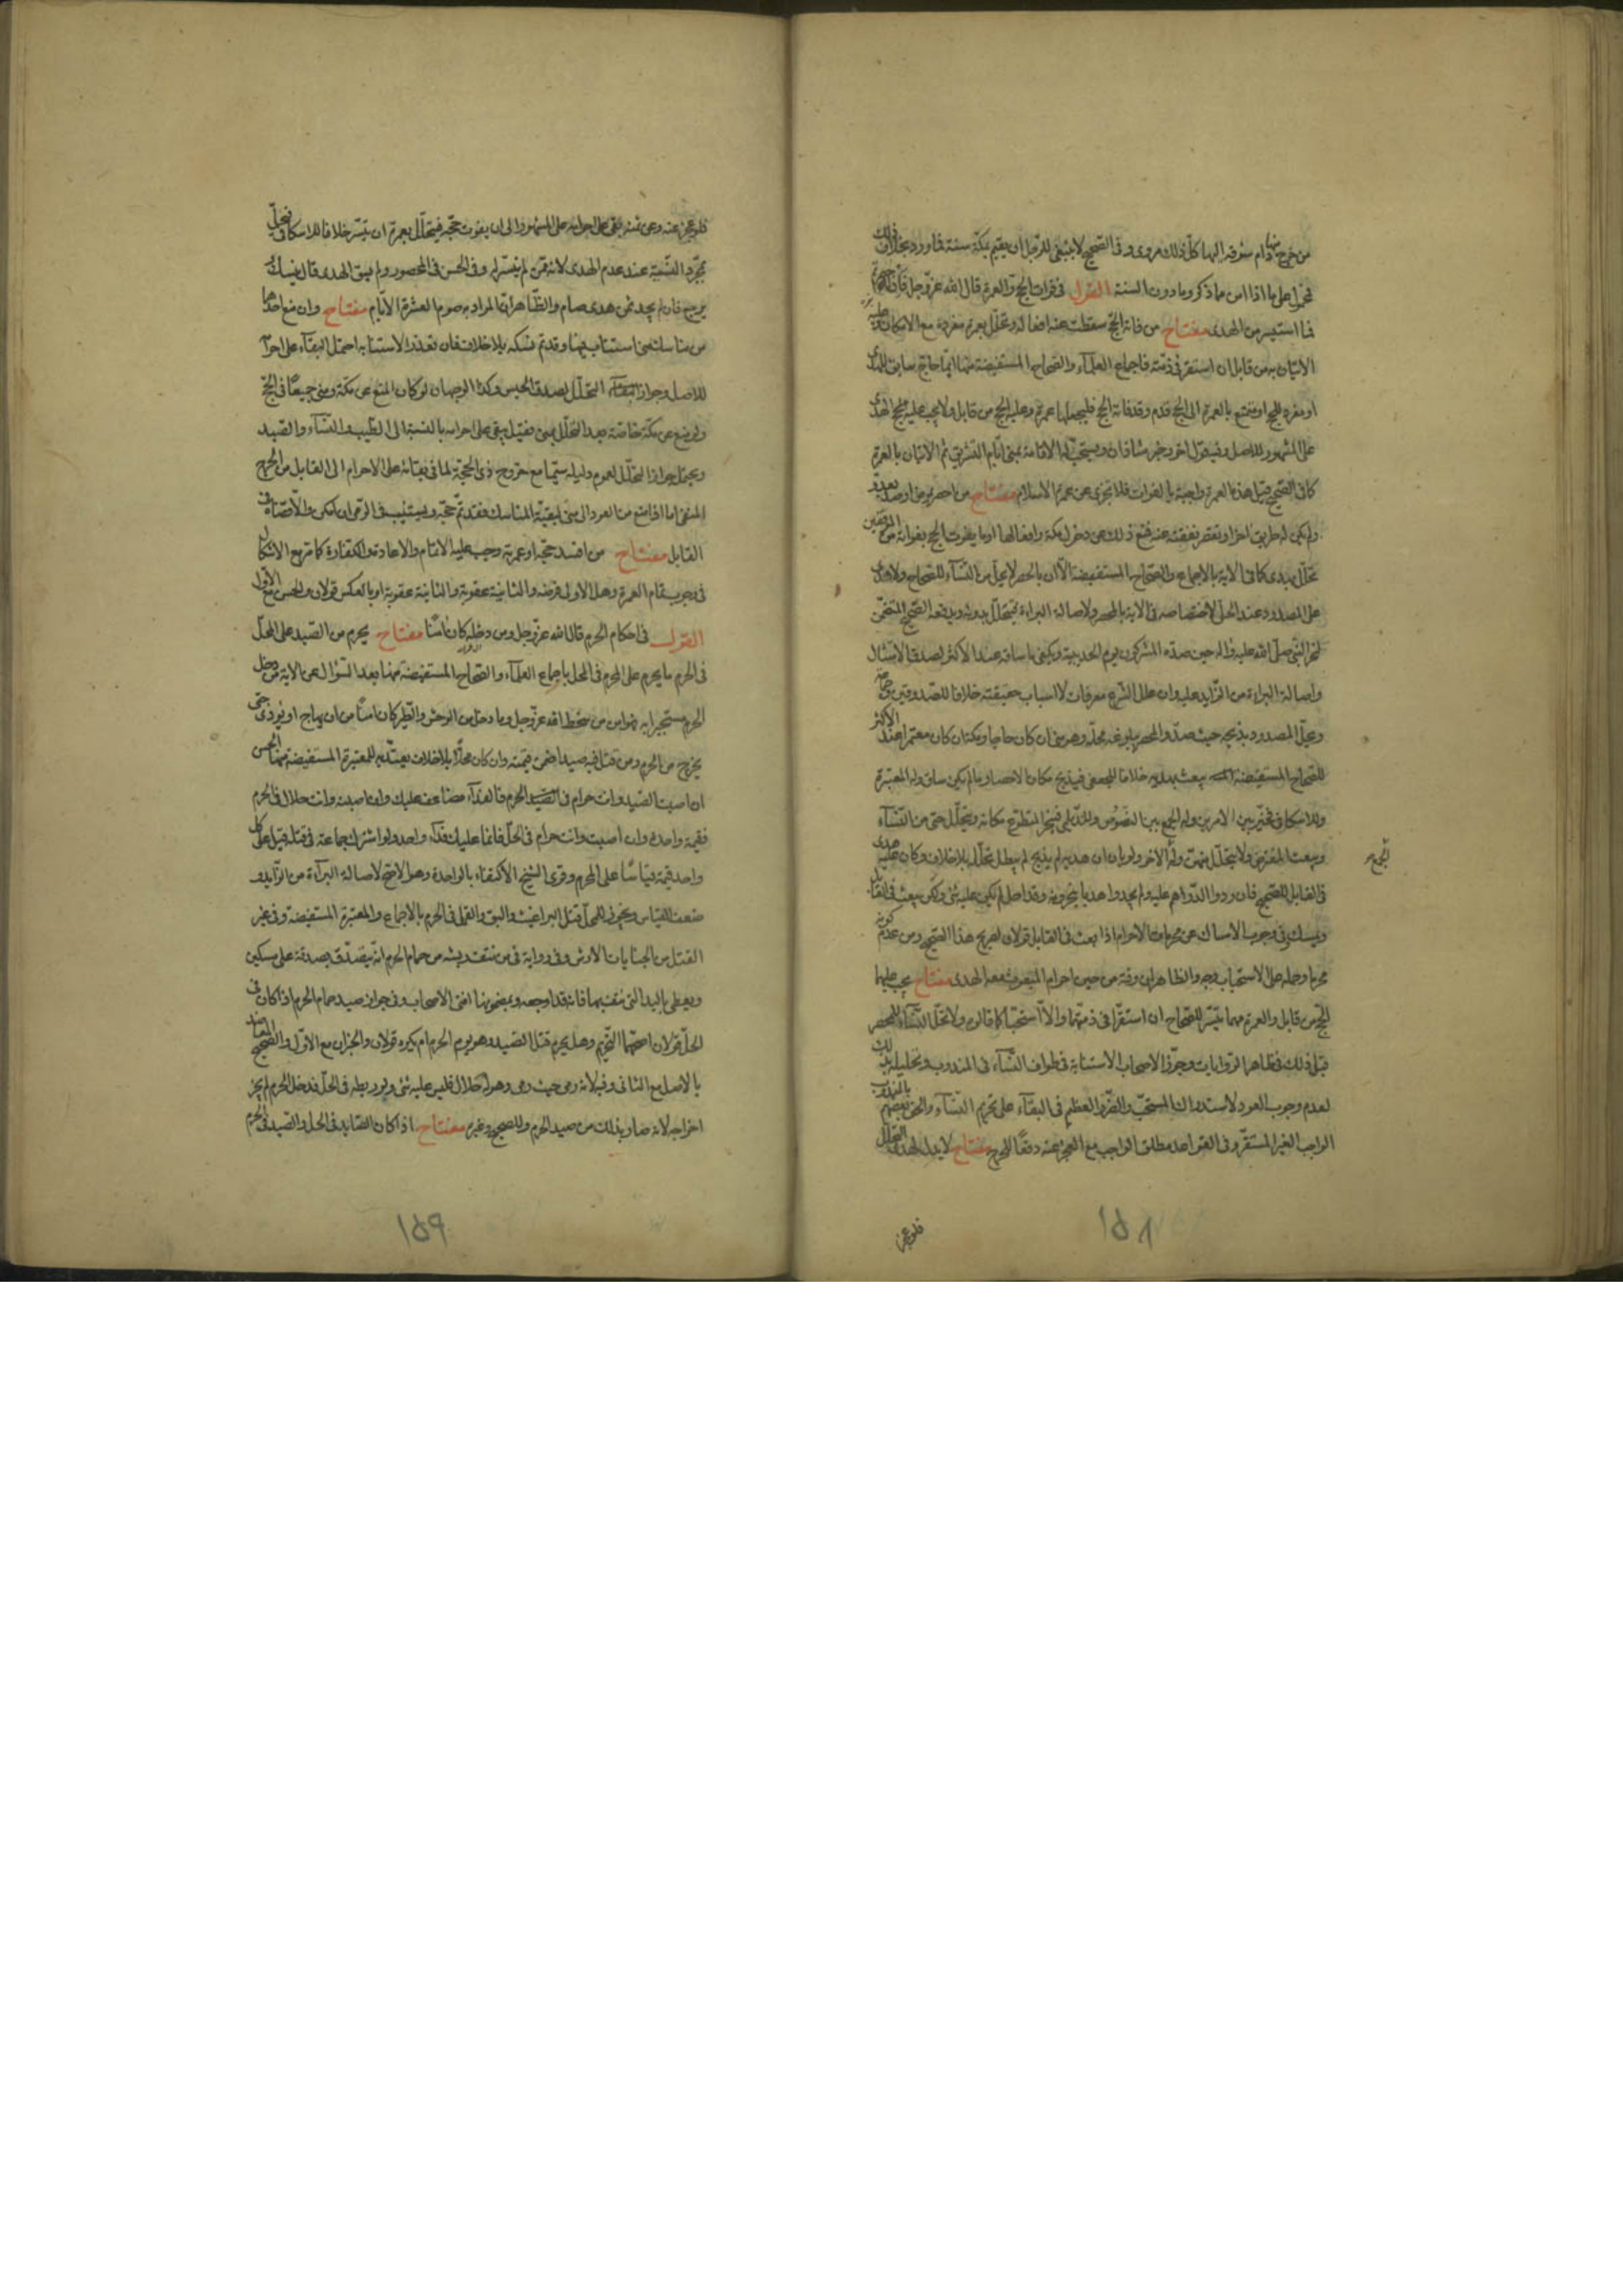 من خرج منها دام شوقه اليها كل ذلك مروى وفى الصحيح لا ينبغى للرجل ان يقيم بمكة سنة وما ورد بخلاف ذلك
فمحمول على ما اذا امن ما ذكر وما دون السنة القول فى فوات الحج والعمرة قال الله عز وجل فان احصرتم
فما استيسر من الهدى مفتاح من فاته الحج سقطت عنه افعاله وتحلل بعمرة مفردة مع الامكان وعليه
الاتيان به من قابل ان استقر فى ذمته باجماع العلماء والصحاح المستفيضة منها ايما حاج سايق للهدى
او مفرد للحج او متمتع بالعمرة الى الحج قدم وقد فاته الحج فليجعلها عمرة وعليه الحج من قابل ولا يجب عليه الهدى
على المشهور للاصل وفيه قول اخر وخبر شاذان ويستحب له الاقامة بمنى ايام التشريق ثم الاتيان بالعمرة
كما فى الصحيح قيل هذه العمرة واجبة بالفوات فلا تجزى عن عمرة الاسلام مفتاح من احصر بمرض او صد بعدو
ولم يكن له طريق اخر او تقصر نفقته عنه فمنع ذلك عن دخول مكة وافعالها او ما يفوت الحج بفواته من الموقفين
تحلل بهدى كما فى الاية بالاجماع والصحاح المستفيضة الا ان بالحصر لا يحل من النساء للصحاح ولا هدى
على المصدود عند الحلى لاختصاصه فى الاية بالمحصر ولاصالة البراءة فيتحلل بدونه ويدفعه الصحيح المتضمن
لنحر النبى صلى الله عليه واله حين صده المشركون يوم الحديبية ويكفى ما ساقه عند الاكثر لصدق الامتثال
واصالة البراءة من الزايد عليه وان علل الشرع معرفات لا اسباب حقيقته خلافا للصدوقين وجماعة
ويحل المصدود بذبحه حيث صد والمحصر ببلوغه محله وهو منى ان كان حاجا ومكة ان كان معتمرا عند الاكثر
للصحاح المستفيضة يبعث بهديه خلافا للجعفى فيذبح مكان الاحصار ما لم يكن ساق وله المعتبرة
وللاسكافى فخير بين الامرين وله الجمع بين النصوص وللديلمى فينحر المتطوع مكانه ويتحلل حتى من النساء
ويبعث المفترض ولا يتحلل منهن وله الاخر ولو بان ان هديه لم يذبح لم يبطل تحلله بلا خلاف وكان عليه هدى
الجمع
فى القابل للصحيح فان ردوا الدراهم عليه ولم يجدوا هديا ينحرونه وقد احل لم يكن عليه شئ ولكن يبعث فى القابل
ويمسك وفى وجوب الامساك عن محرمات الاحرام اذا بعث فى القابل قولان لصريح هذا الصحيح ومن عدم كونه
محرما وحمله على الاستحباب وجه والظاهر ان وقته من حين احرام المبعوث معه الهدى مفتاح يجب عليهما
الحج من قابل والعمرة مهما تيسر للصحاح ان استقرا فى ذمتهما والا استحبا كما قالوه ولا تحل النساء للمحصر
قبل ذلك فى ظاهر الروايات وجوز الاصحاب الاستنابة فى طواف النساء فى المندوب وتحليله بذلك
لعدم وجوب العود لاستدراك المستحب والضرر العظيم فى البقاء على تحريم النساء والحق بعضهم بالمندوب
الواجب الغير المستقر وفى القواعد مطلق الواجب مع العجز عنه دفعا للحرج مفتاح لا بدل لهدى التحلل
فلو عجز
١٥٨
فلو عجز عنه وعن ثمنه بقى على احرامه على المشهور الى ان يفوت حجه فيتحلل بعمرة ان تيسر خلافا للاسكافى فيحل
بمجرد النية عند عدم الهدى لانه ممن لم يتيسر له وفى الحسن فى المحصور ولم يسق الهدى قال ينسك
يرجع فان لم يجد ثمن هدى صام والظاهر ان المراد به صوم العشرة الايام مفتاح وان منع احدهما
من مناسك منى استناب فيها وقد تم نسكه بلا خلاف فان تعذر الاستنابة احتمل البقاء على احرامه
للاصل وجواز التحلل لصدق الحبس وكذا الوجهان لو كان المنع عن مكة ومنى جميعا فى الحج
ولو منع عن مكة خاصة بعد التحلل بمنى فقيل يبقى على احرامه بالنسبة الى الطيب والنساء والصيد
ويحتمل جواز التحلل لعموم دليله سيما مع خروج ذى الحجة لما فى بقائه على الاحرام الى القابل من الحرج
المنفى اما اذا منع من العود الى منى لبقية المناسك فقد تم حجه ويستنيب فى الرمى ان امكن والا قضاه فى
القابل مفتاح من افسد حجه او عمرته وجب عليه الاتمام والاعادة والكفارة كما مر مع الاشكال
فى وجوب تمام العمرة وهل الاولى فرضه والثانية عقوبة او بالعكس قولان والحسن مع الاول
القول فى احكام الحرم قال الله عز وجل ومن دخله كان امنا مفتاح يحرم من الصيد على المحل
فى الحرم ما يحرم على المحرم فى المحل باجماع العلماء والصحاح المستفيضة منها بعد السؤال عن الاية من دخل
الحرم مستجيرا به فهو امن من سخط الله عز وجل وما دخل من الوحش والطير كان امنا من ان يهاج او يؤذى حتى
يخرج من الحرم ومن قتل فيه صيدا ضمن قيمته وان كان محلا بلا خلاف يعتد به للمعتبرة المستفيضة منها الحسن
ان اصبت الصيد وانت حرام فى الحرم فالفداء مضاعف عليك وان اصبته وانت حلال فى الحرم
فقيمة واحدة وان اصبت وانت حرام فى الحل فانما عليك فداء واحد ولو اشترك جماعة فى قتله قيل على كل
واحد قيمة قياسا على المحرم وقوى الشيخ الاكتفاء بالواحدة وهو الاصح لاصالة البراءة من الزايد و
ضعف القياس ويجوز للمحل قتل البراغيث والبق والقمل فى الحرم بالاجماع والمعتبرة المستفيضة وفى غير
القتل من الجنايات الارش وفى رواية فى من نتف ريشه من حمام الحرم انه يتصدق بصدقة على مسكين
ويعطى باليد التى نتف بها فانه قد اوجعه وبمضمونها افتى الاصحاب وفى جواز صيد حمام الحرم اذا كان فى
الحل قولان اصحهما التحريم وهل يحرم قتل الصيد وهو يؤم الحرم ام يكره قولان والخبران مع الاول والصحيح
بالاصل مع الثانى وفيه لانه رمى حيث رمى وهو له حلال فليس عليه شئ ولو ربطه فى الحل فدخل الحرم لم يجز
اخراجه لانه صار بذلك من صيد الحرم وللصحيح وغيره مفتاح اذا كان الصايد فى الحل والصيد فى الحرم
١٥٩